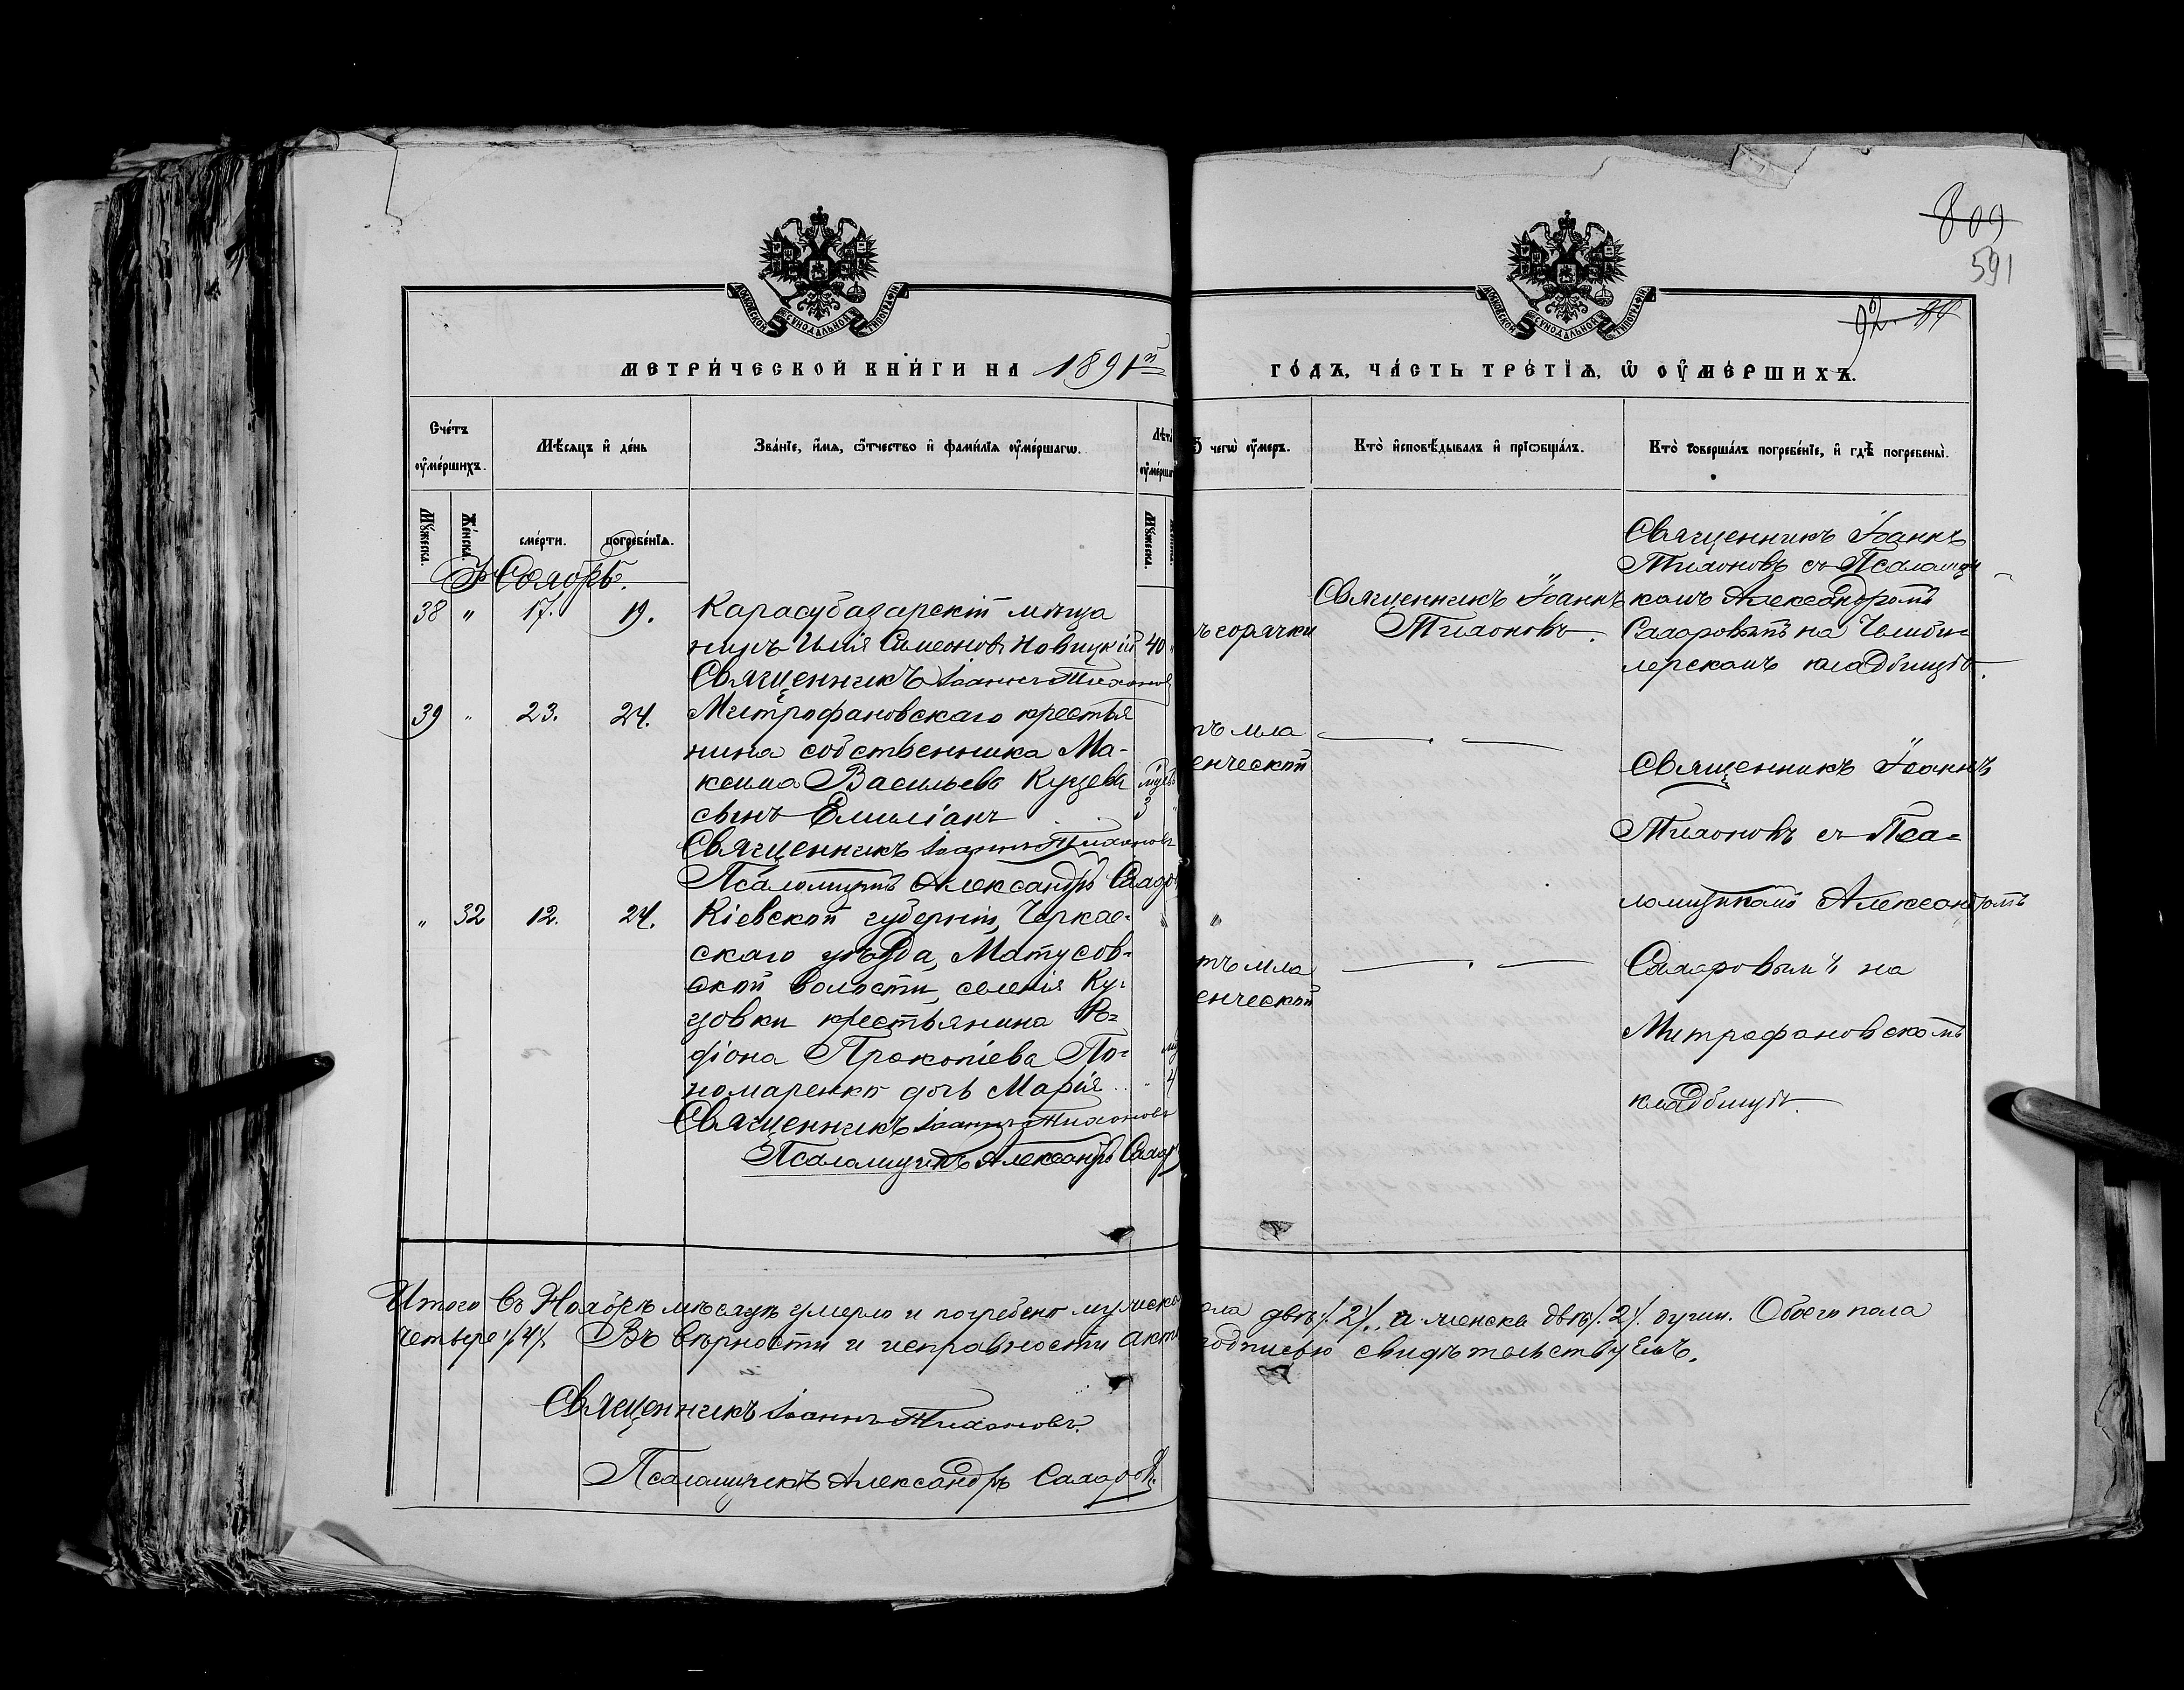 809
591
92.
МОСКОВСКОЙ СѴНОДАЛЬНОЙ ТИПОГРАФІИ
МОСКОВСКОЙ СѴНОДАЛЬНОЙ ТИПОГРАФІИ
МЕТРИ́ЧЕСКОЙ КНИ́ГИ НА 1891й
ГО́ДЪ, ЧА́СТЬ ТРЕ́ТІѦ, Ѿ ОУ҆МЕ́РШИХЪ.
Сче́тъ оу҆ме́ршихъ.
Мѣ́сѧцъ и҆ де́нь
Зва́нїе, и҆́мѧ, ѻ҆́тчество и҆ фами́лїѧ оу҆ме́ршагѡ.
Лѣ́та
чегѡ̀ оу҆́меръ.
Кто̀ и҆сповѣ́дывалъ и҆ прїѡбща́лъ.
Кто̀ соверша́лъ погребе́нїе, и҆ гдѣ̀ погребены̀.
Мꙋ́жеска.
Же́нска.
сме́рти.
погребе́нїѧ.
Мꙋ́жеска.
Ноябрь.
38 " 17. 19. Карасубазарскій мѣща
нинъ Илія Симеоновъ Новицкій 40
Священникъ Іоаннъ Тихоновъ
горячки
Священникъ Іоаннъ
Тихоновъ.
Священникъ Іоаннъ
Тихоновъ съ Псаломщи
комъ Александромъ
Сахаровымъ на
кладбищѣ.
39 " 23. 24. Митрофановскаго крестья
нина собственника Ма-
ксима Васильева Куцева
сынъ Емиліанъ 3
Священникъ Іоаннъ Тихоновъ
Псаломщикъ Александръ Сахаро
мла
енческой
Священникъ Іоаннъ
Тихоновъ съ Пса-
ломщикомъ Александромъ
Сахаровымъ на
Митрофановскомъ
кладбищѣ.
" 32 12. 24. Кіевской губерніи, Черкас-
скаго уѣзда, Матусов-
ской волости, селенія Ку-
цовки крестьянина Ро-
діона Прокопіева По-
номаренко дочь Марія 4
Священникъ Іоаннъ Тихоновъ
Псаломщикъ Александръ Сахаро
тъ мла
енческой
Итого въ Ноябрѣ мѣсяцѣ умерло и погребено мужеска пола двѣ /.2/., а женска двѣ /.2/. души. Обоего пола
четверо /.4/. Въ вѣрности и исправности акт подписью свидѣтельствуемъ.
Священникъ Іоаннъ Тихоновъ.
Псаломщикъ Александръ Сахаровъ.